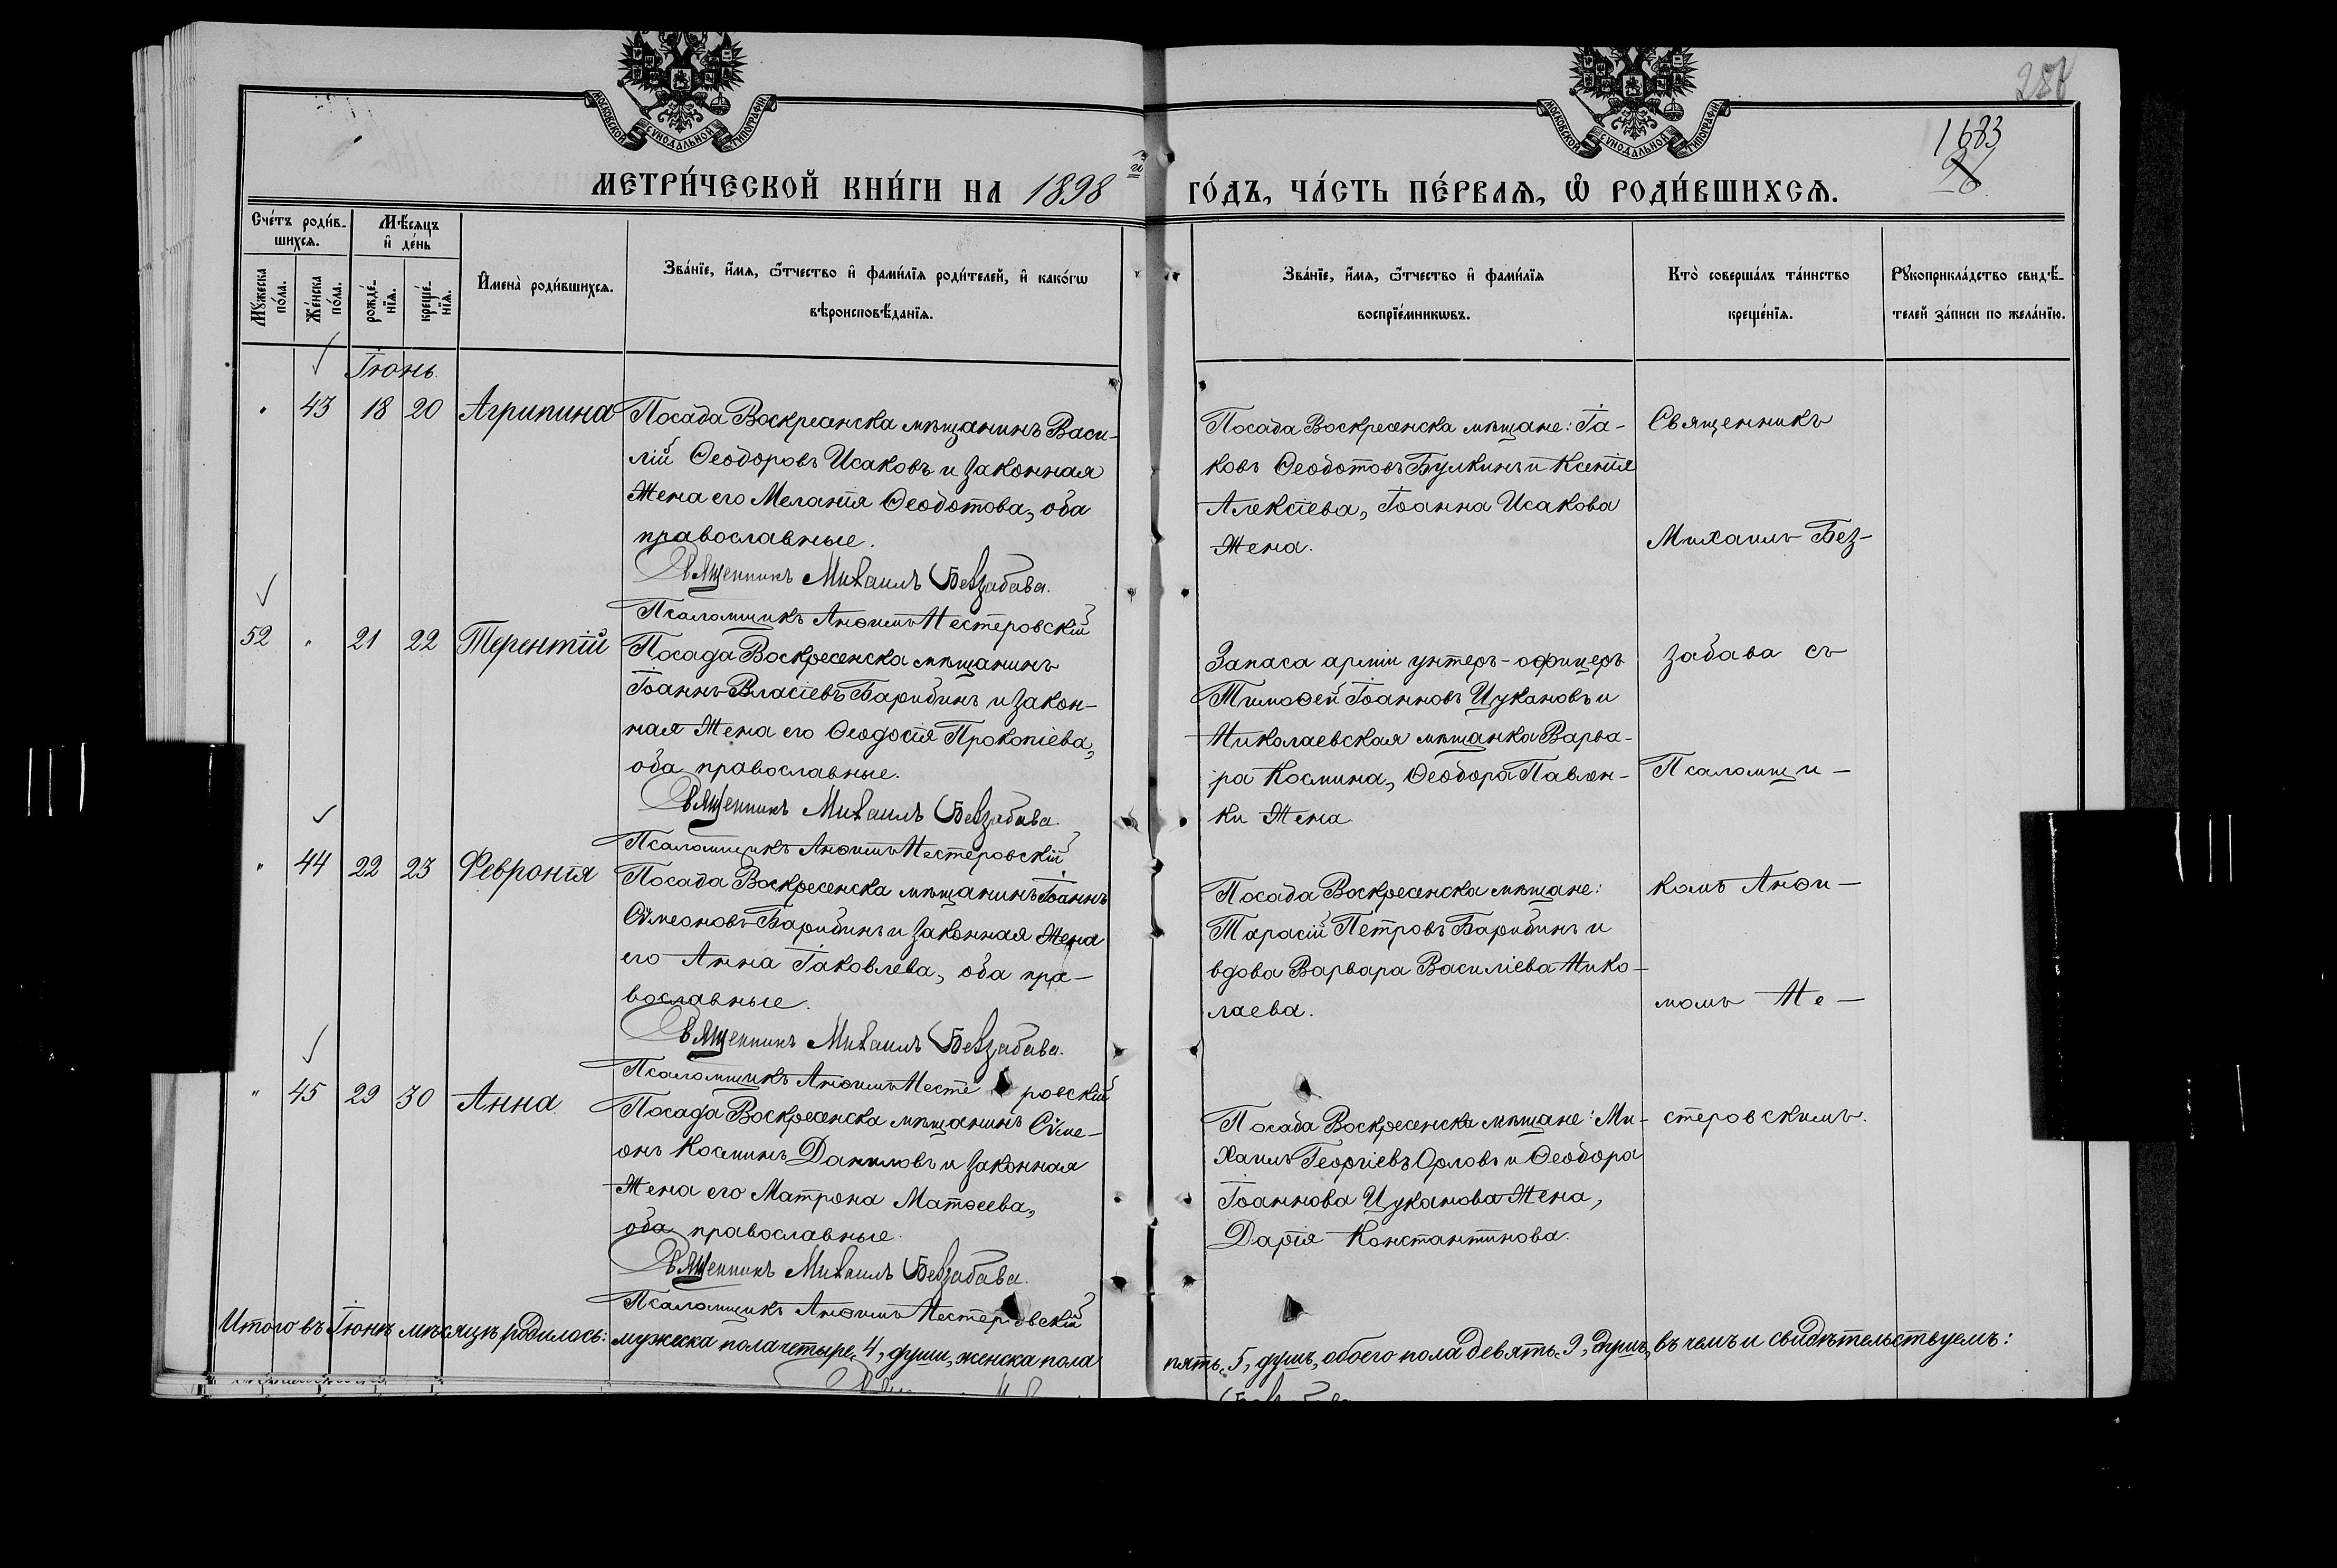 МОСКОВСКОЙ СѴНОДАЛЬНОЙ ТИПОГРАФІИ
МОСКОВСКОЙ СѴНОДАЛЬНОЙ ТИПОГРАФІИ
1683
26
МЕТРИ́ЧЕСКОЙ КНИ́ГИ НА 1898 й ГО́ДЪ, ЧА́СТЬ ПЕ́РВАѦ, Ѡ҆ РОДИ́ВШИХСѦ.
Сче́тъ роди́в-
шихсѧ.
Мѣ́сяцъ
и҆ де́нь
Мꙋжеска по́ла.
Же́нска по́ла.
рожде́-нїѧ.
креще́-нїѧ.
И҆мена̀ роди́вшихсѧ.
Зва́нїе, и҆́мѧ, ѻ҆́тчество и҆ фами́лїѧ роди́телей, и҆ како́гѡ
вѣроисповѣ́данїѧ.
Зва́нїе, и҆́мѧ, ѻ҆́тчество и҆ фами́лїѧ
воспрїе́мникѡвъ.
Кто̀ соверша́лъ та́инство
креще́нїѧ.
Рꙋкоприкла́дство свидѣ́-
телей за́писи по жела́нїю.
Іюнь.
" 43 18 20 Агрипина
Посада Воскресенска мѣщанинъ Васи-
лій Ѳеодоровъ Исаковъ и законная
жена его Меланія Ѳеодотова, оба
православные.
Священникъ Михаилъ Беззабава.
Псаломщикъ Анѳимъ Нестеровскій
Посада Воскресенска мѣщане: Іа-
ковъ Ѳеодотовъ Булкинъ и Ксенія
Алексіева, Іоанна Исакова
жена.
Священникъ
Михаилъ Без-
52 " 21 22 Терентій
Посада Воскресенска мѣщанинъ
Іоаннъ Власіевъ Барибинъ и закон-
ная жена его Ѳеодосія Прокопіева,
оба православные.
Священникъ Михаилъ Беззабава.
Псаломщикъ Анѳимъ Нестеровскій
Запаса арміи унтеръ-офицеръ
Тимоѳей Іоанновъ Цукановъ и
Николаевская мѣщанка Варва-
ра Космина, Ѳеодора Павлен-
ки жена
забава съ
Псаломщи-
" 44 22 23 Февронія
Посада Воскресенска мѣщанинъ Іоаннъ
Сѵмеоновъ Барибинъ и законная жена
его Анна Іаковлева, оба пра-
вославные.
Священникъ Михаилъ Беззабава.
Псаломщикъ Анѳимъ Нестеровскій
Посада Воскресенска мѣщане:
Тарасій Петровъ Барибинъ и
вдова Варвара Василіева Нико-
лаева.
комъ Анѳи-
момъ Не-
" 45 29 30 Анна
Посада Воскресенска мѣщанинъ Сѵме-
онъ Косминъ Даниловъ и законная
жена его Матрона Матѳеева,
оба православные.
Священникъ Михаилъ Беззабава.
Псаломщикъ Анѳимъ Нестеровскій
Посада Воскресенска мѣщане: Ми-
хаилъ Георгіевъ Орловъ и Ѳеодора
Іоаннова Цуканова жена,
Дарія Константинова.
стеровскимъ.
Итого въ Іюнѣ мѣсяцѣ родилось: мужеска пола четыре, 4, души, женска пола
пять, 5, душъ, обоего пола девять, 9, душъ, въ чемъ и свидѣтельствуемъ: